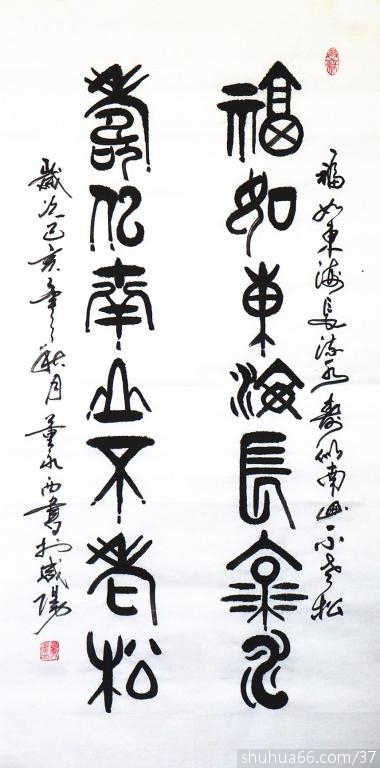 福如東海長流水壽似南山不老松
福如東海長流水
壽似南山不老松
歲次己亥年秋月董永西書於咸陽
shuhua66.com/37